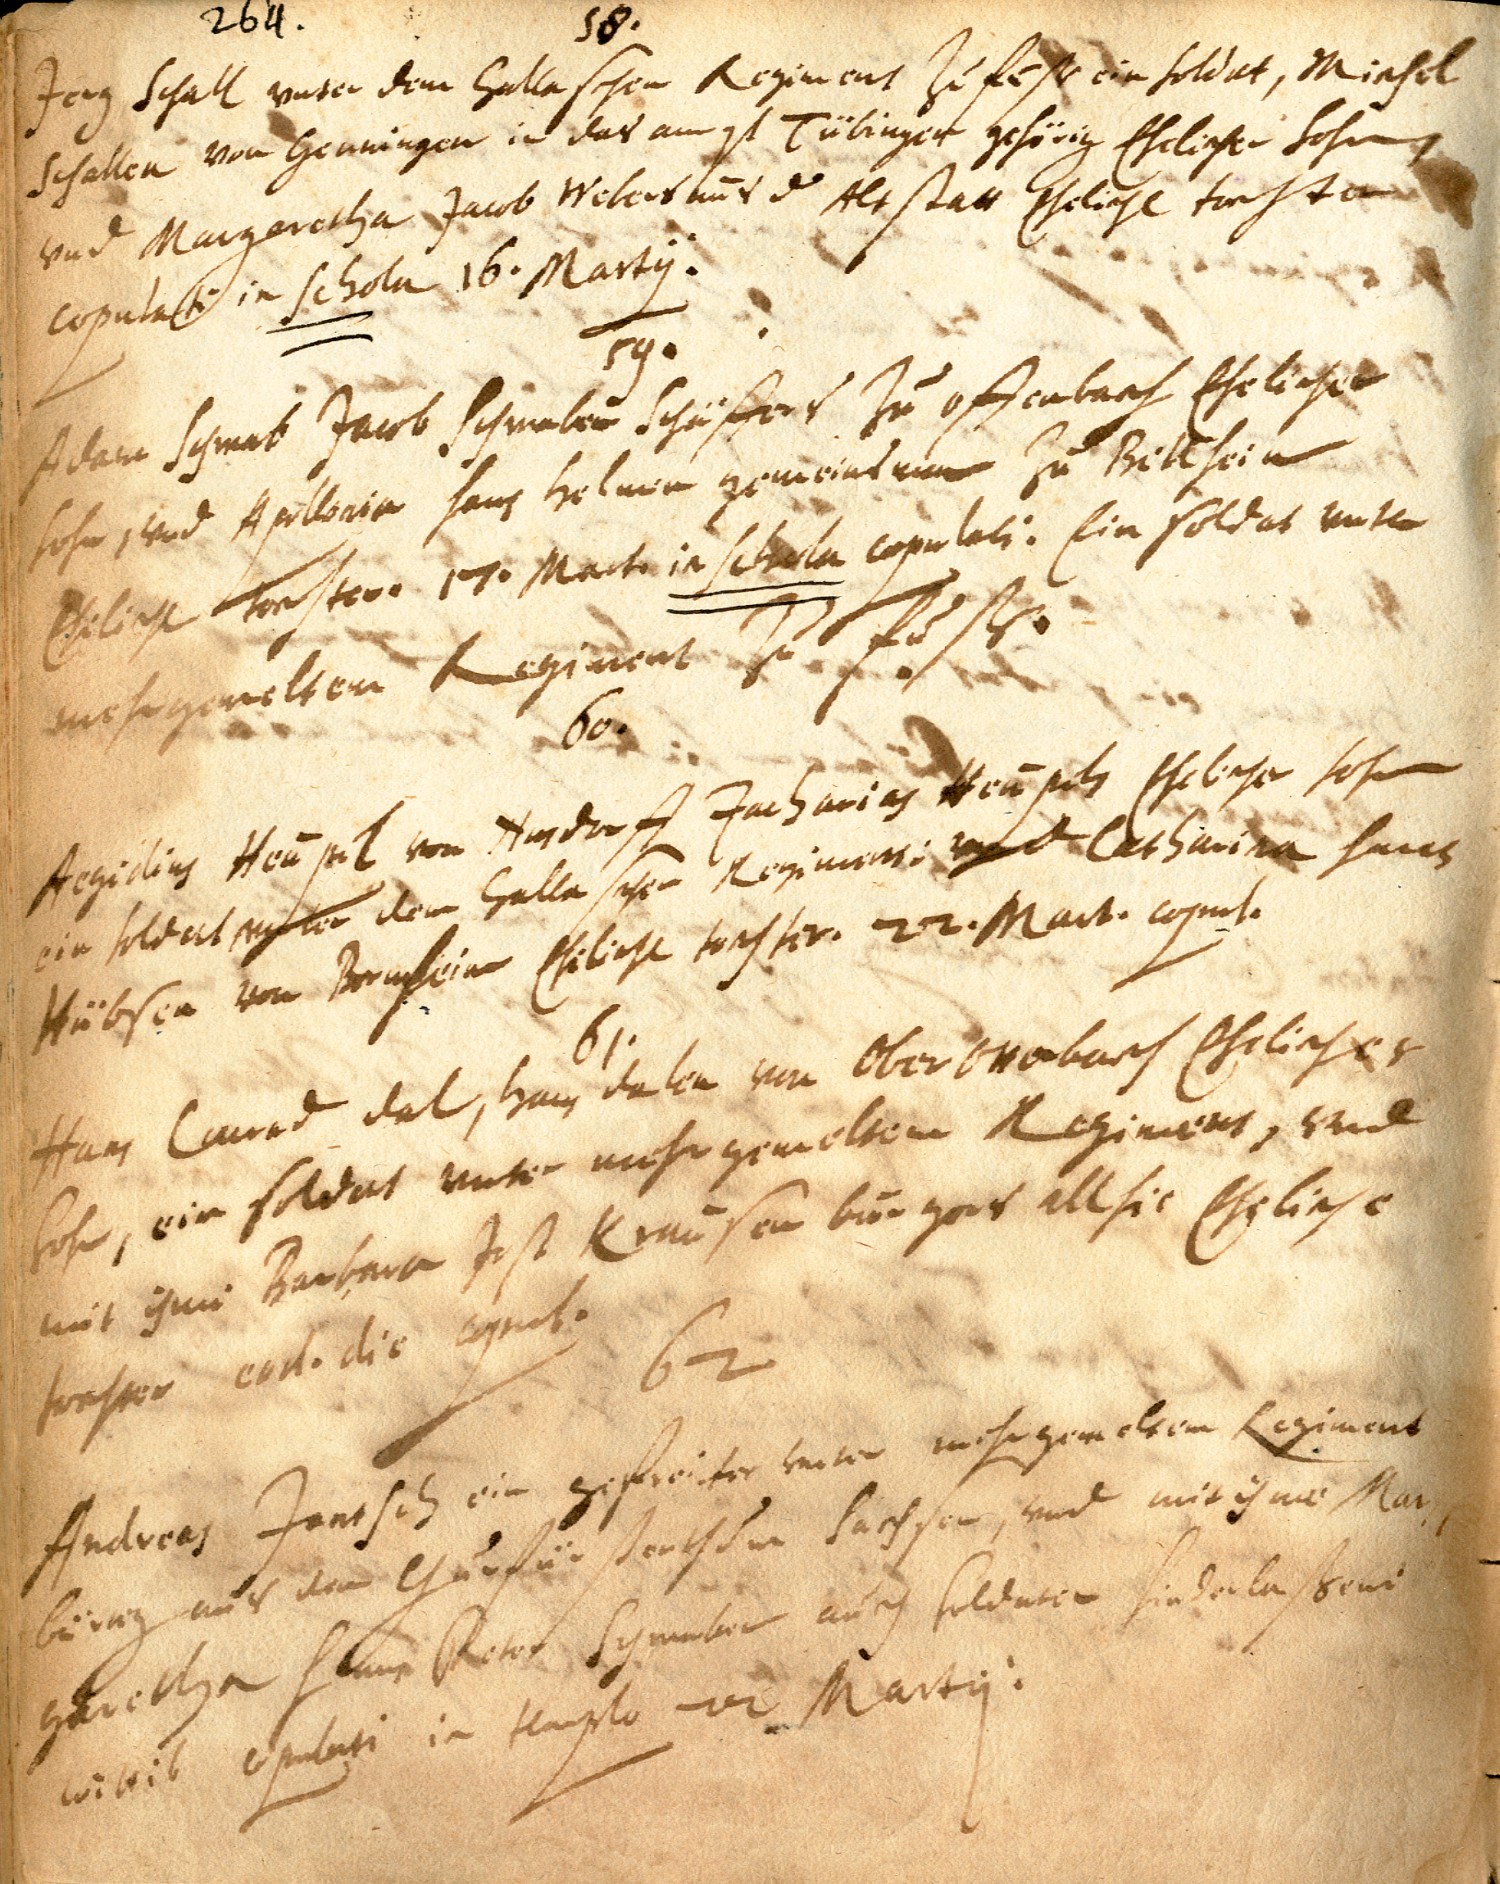 264. 58.
Jerg Schall unter dem Gallaschen Regiment zu fuß ein soldat, Michel
Schallen von Genningen in das ampt Tübingen gehörig Ehelicher Sohn,
vnd Margaretha Jacob Webers auß d Altstatt Eheliche tochter
copulati in schola 16. Martij.
59.
Adam Schwab Jacob Schwaben Schäffers zu offenbach Ehelicher
sohn, vnd Apollonia hans helmen gemeinsman zu Bellheim
Eheliche tochter. 17. Mart. in schola copulati. Ein soldat unter
mehrgemeltem Regiment zu fuß.
60.
Aegidius Heüpel von Zacharias Heüpels Ehelicher sohn
ein soldat unter dem Gallaschen Regiment: vnd Catharina hans
Hübschen von Bornheim Eheliche tochter. 22. Mart. copul.
61.
Hans Conrad dal, hans dalen von Oberotterbach Ehelicher
sohn, ein soldat unter mehrgemeltem Regiment, vnd
mit ihme Barbara Jost Kraüsen burgers allhie Eheliche
tochter eod. die copul.
62
Andreas Jentsch ein gefreiter unter mehrgemeltem Regiment
bürtig auß dem Churfürstenthum Sachsen, vnd mit ihme Mar,
garetha hans Peter Schwaben auch soldaten hinderlaßene
wittib copulati in templo 22 Martij.